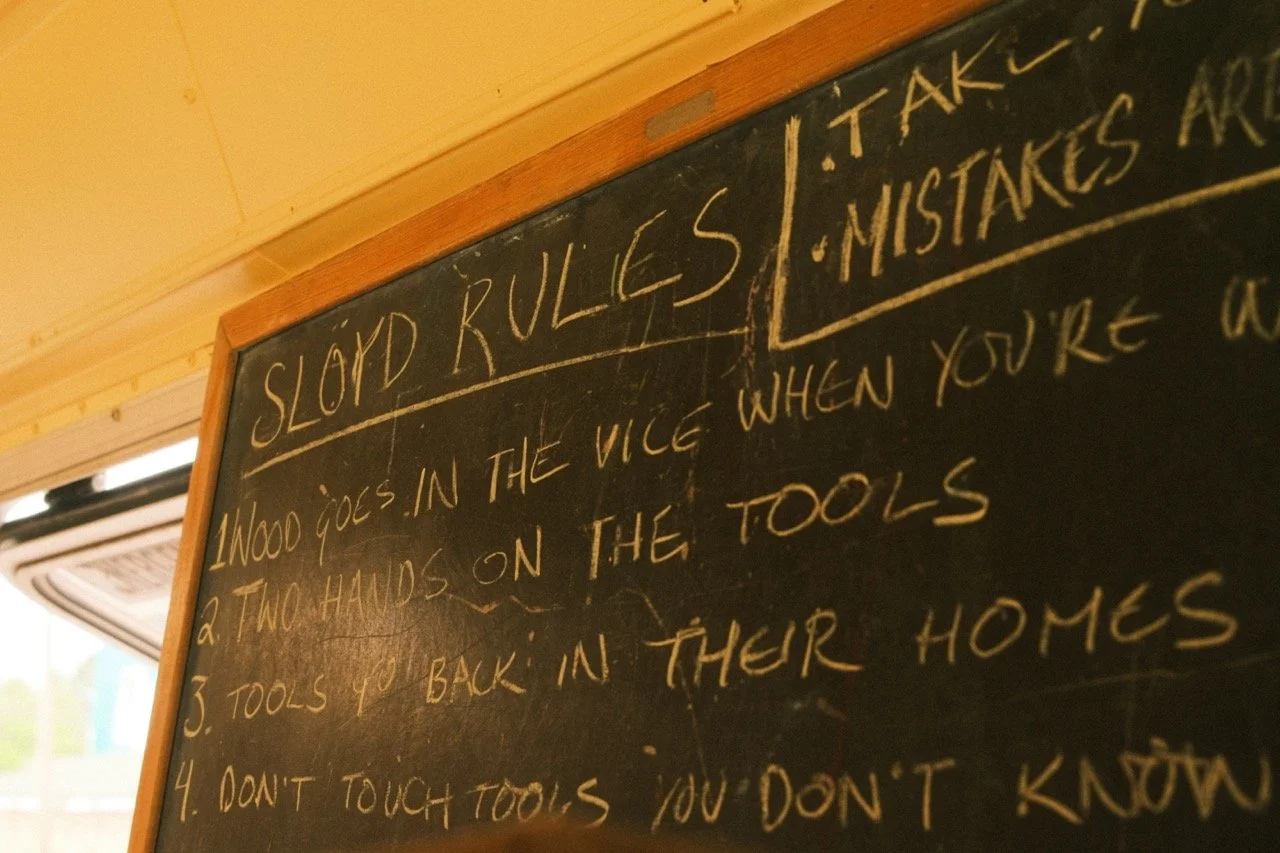 SLÖYD RULES
.TAKE
.MISTAKES ARE
1 WOOD GOES IN THE VICE WHEN YOU'RE
2. TWO HANDS ON THE TOOLS
3. TOOLS GO BACK IN THEIR HOMES
4. DON'T TOUCH TOOLS YOU DON'T KNOW